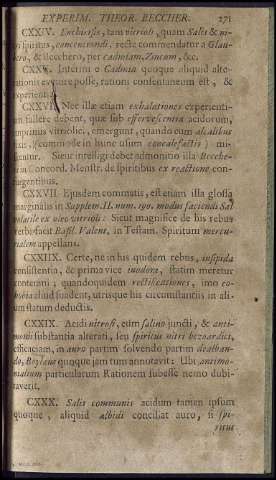 EXPERIM. THEOR. BECCHER. 271
CXXIV. Enchirisis, tam vitrioli, quam Salis & ni-
tri spiritus, concentrandi, recte commendatur a Glau-
bero, & Becchero, per Cadmiam, Zincum, &c.
CXXV. Interim e Cadmia quoque aliquid alte-
rationis evenire posse, rationi consentaneum est, &
experientiæ.
CXXVI. Nec illæ etiam exhalationes experienti-
am fallere debent, quæ sub effervescentia acidorum,
inprimis vitriolic. emergunt, quando cum alcalibus
ad hunc usum concalefactis
Sicut intelligi debet admonitio illa Becche-
ri in Concord. Menstr. de spiritibus ex reactione con-
tingentibus.
CXXVII. Ejusdem commatis, est etiam illa glossa
marginalis in Supplem. II. num. 190. modus faciendi Sal
volatile ex oleo vitrioli: Sicut magnifice de his rebus
verba facit Basil. Valent. in Testam. Spiritum mercu-
rialem appellans.
CXXIIX. Certe, ne in his quidem rebus, insipida
consistentia, & prima vice inodora, statim meretur
contemni, quandoquidem rectificationes, imo co-
aliud suadent, utrisque his circumstantiis in ali-
um statum deductis.
CXXIX. Acidi nitrosi, etim salino juncti, & anti-
monii substantia alterati, seu spiritus nitri bezoardici,
efficaciam, in auro partim solvendo partim dealban-
do, Boyleus quoque jam tum annotavit: Ubi antimo-
nialium particularum Rationem subesse nemo dubi-
taverit.
CXXX. Salis communis acidum tamen ipsum
quoque, aliquid albidi conciliat auro, si spi-
ritus